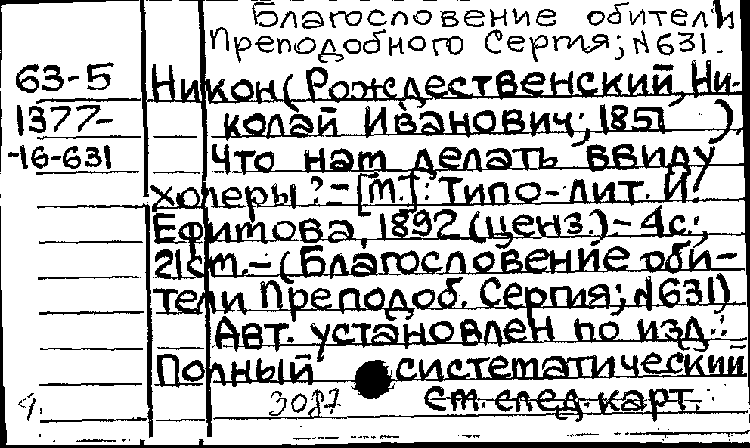 Благословение обители
Преподобного Сергия; N631.
63-5 Никон (Рождественский, Ни-
1377- колай Иванович; 1851 ).
-16-631 Что нам делать ввиду
холеры? - [М.]: Типо-лит. И.
Ефимова, 1892 (ценз.) - 4с.;
21см. - (Благословение оби-
тели Преподоб. Сергия; N631)
Авт. установлен по изд.:
Полный систематический
3087 см. след. карт.